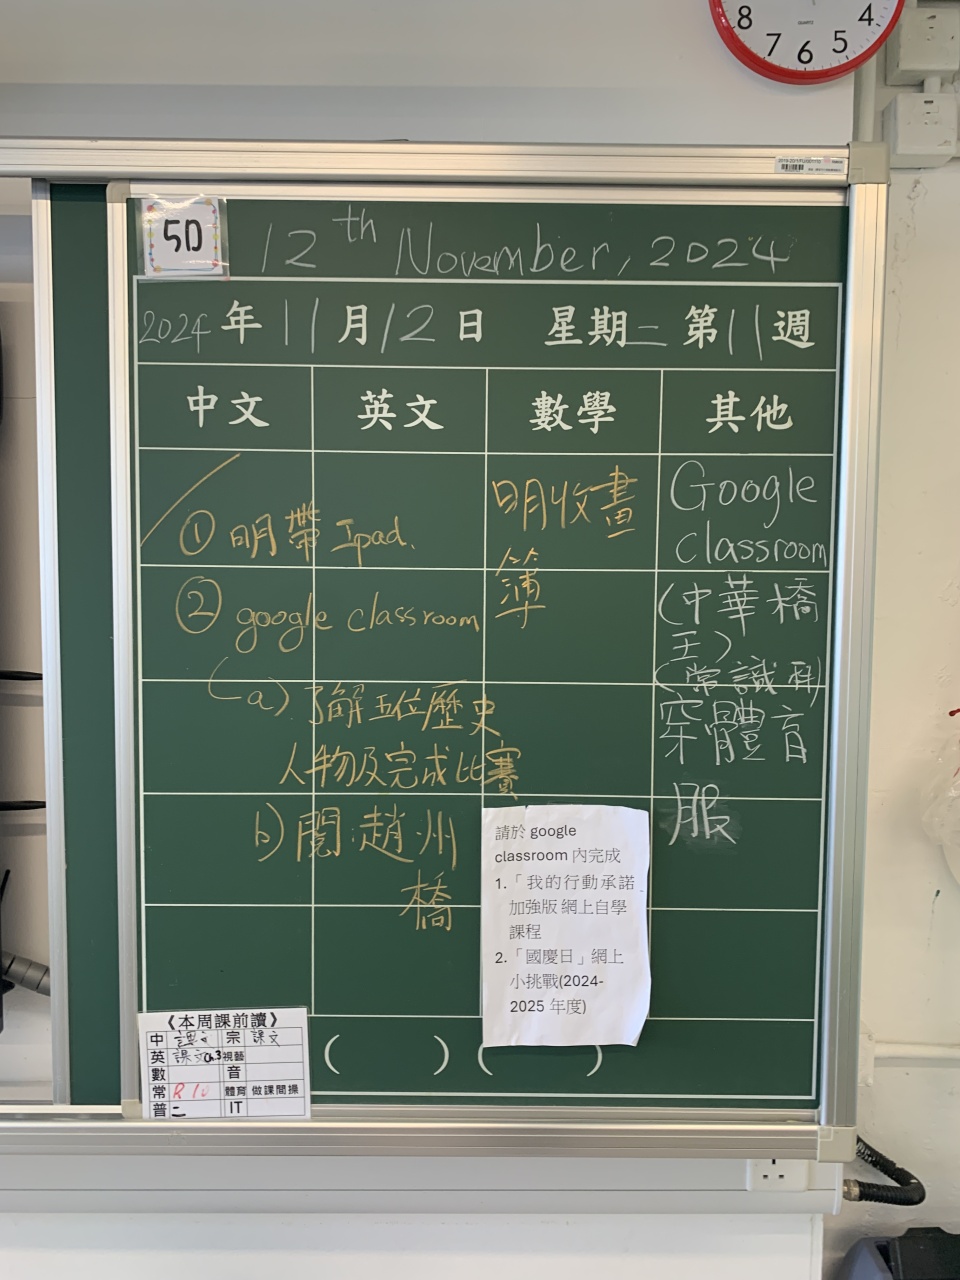 8 7 6 5 4
5D
12th November, 2024
2024年11月12日 星期二 第11週
中文 英文 數學 其他
① 明帶 Ipad.
② google classroom
(a) 了解五位歷史
人物及完成比賽
b) 閱:趙州
橋
明收畫
簿
Google
classroom
(中華橋
王)
(常識科)
穿體育
服
請於 google
classroom 內完成
1.「我的行動承諾
加強版 網上自學
課程
2.「國慶日」網上
小挑戰(2024-
2025 年度)
《本周課前讀》
中 課文 宗 課文
英 課文 Ch.3 視藝
數 音
常 體育 做課間操
普 二 IT
( ) ( )